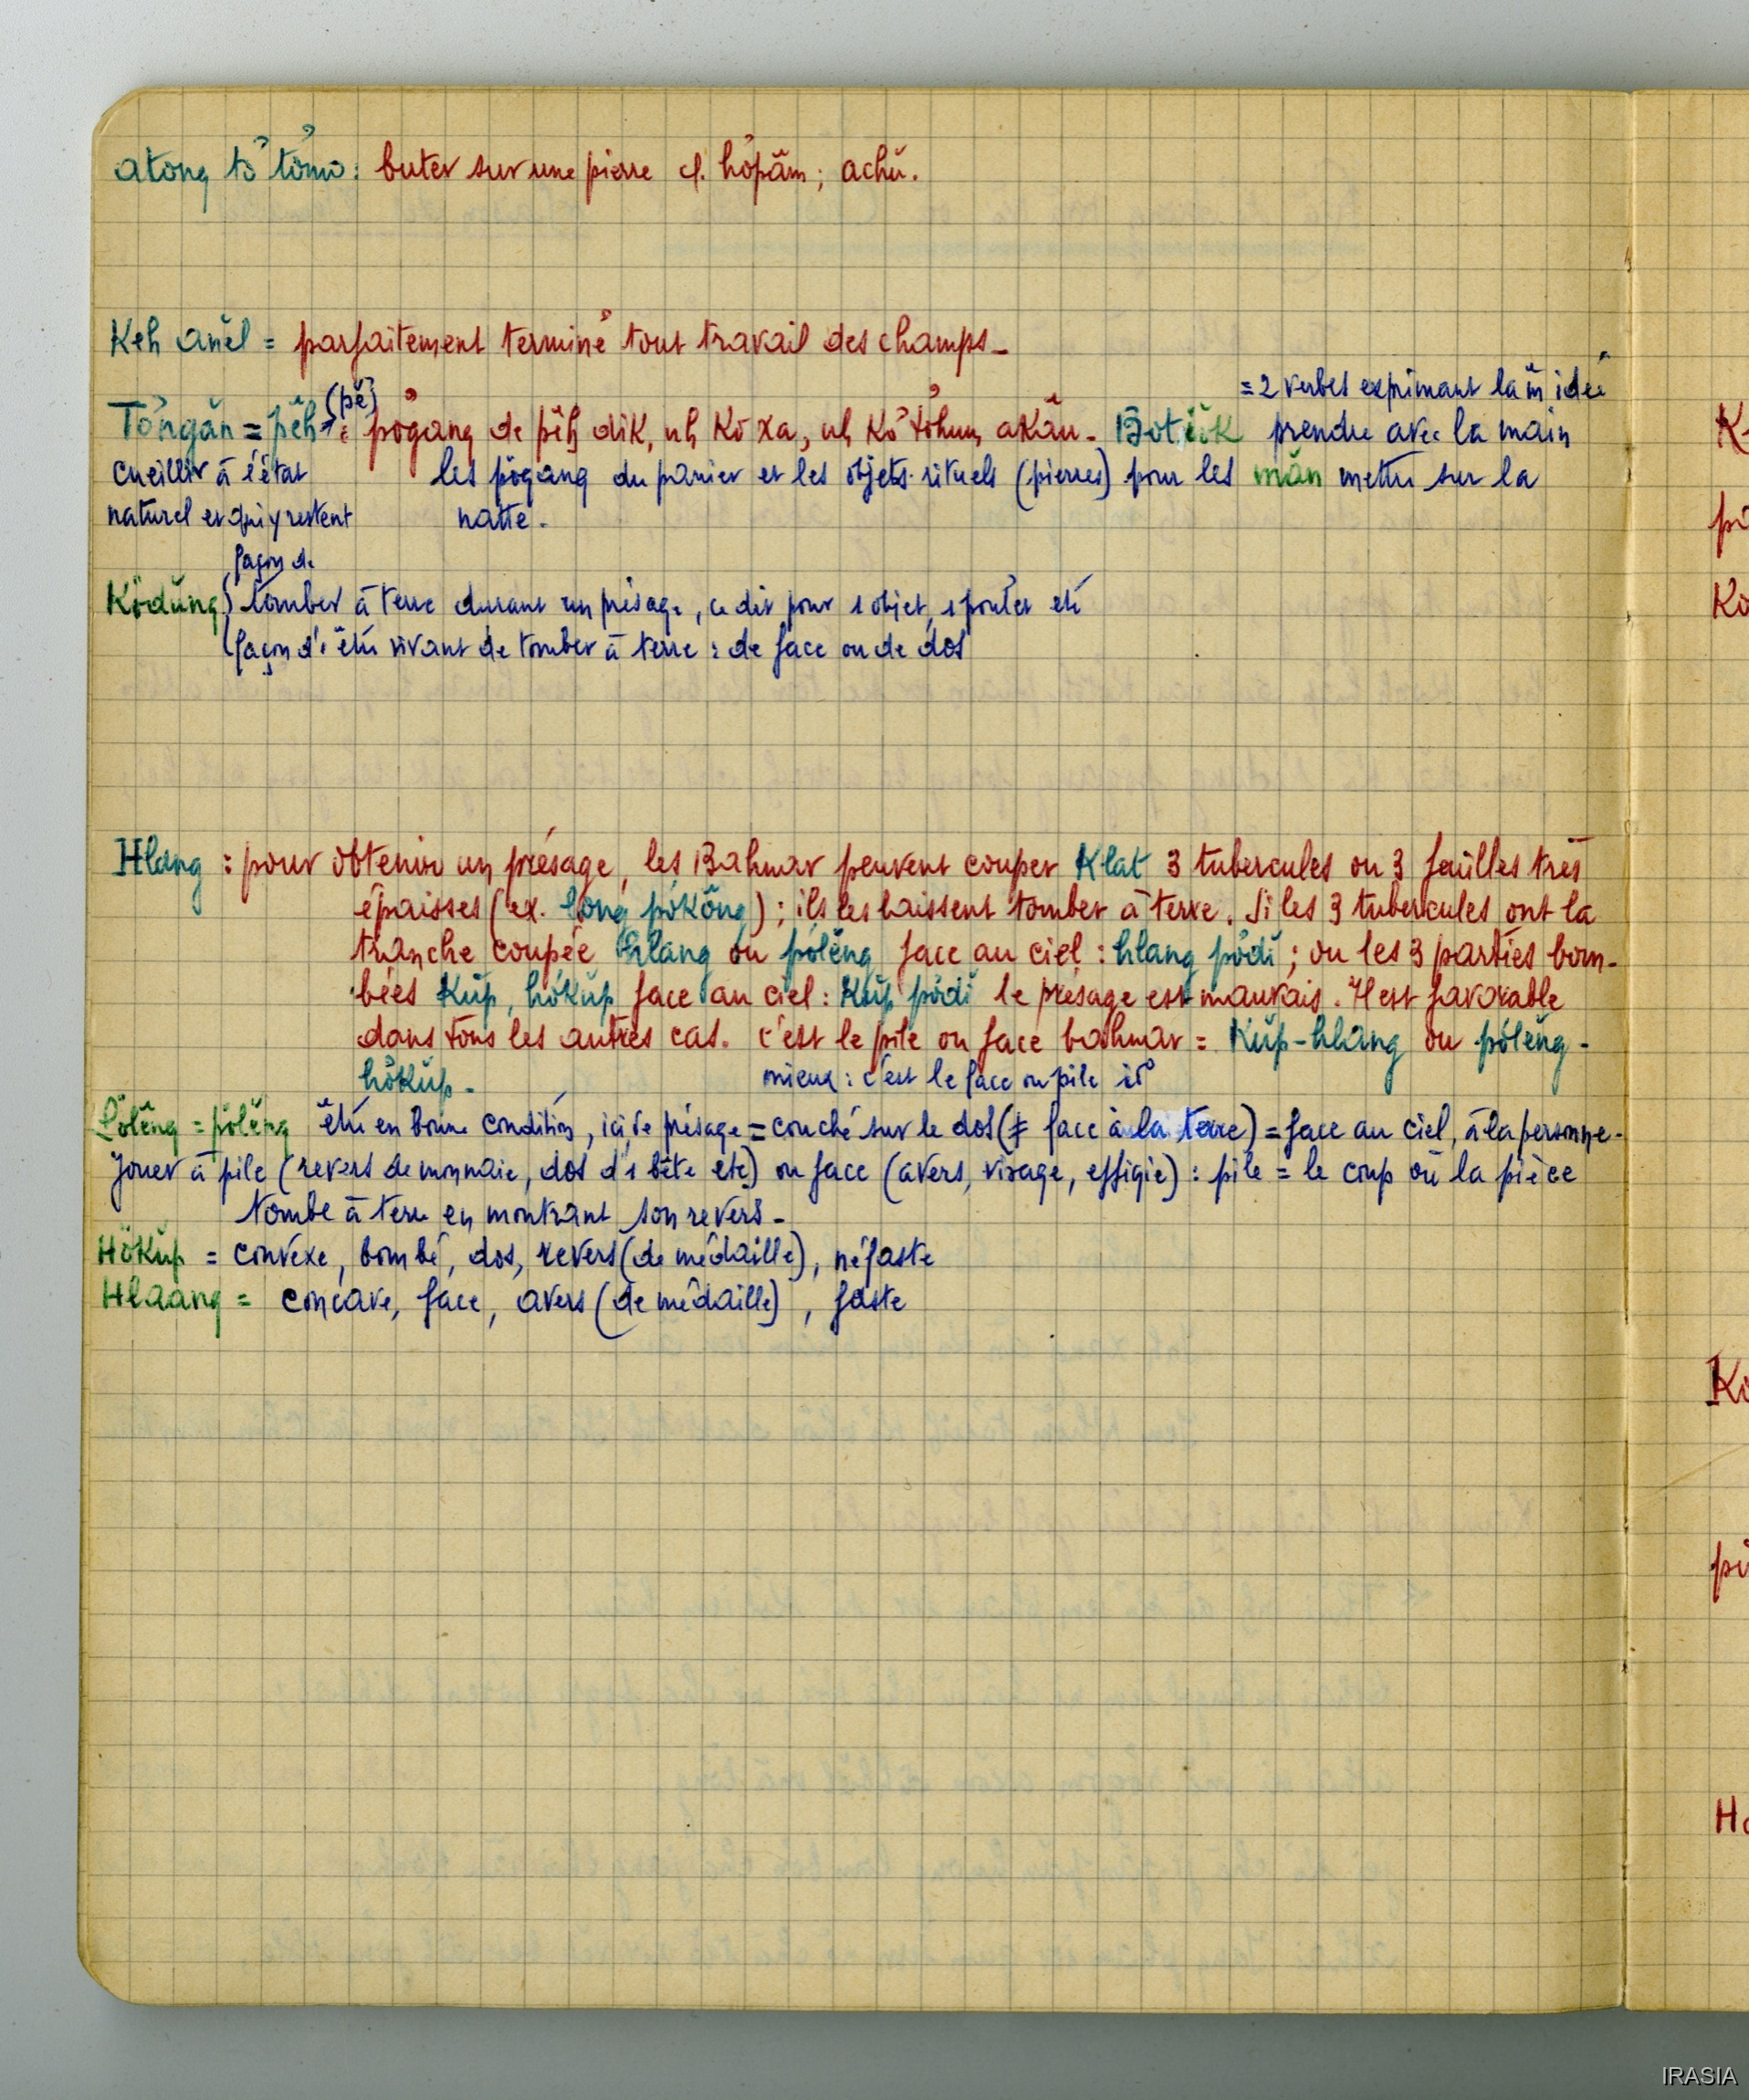 atong tơ̆ tơmo : buter sur une pierre cf. hơpăm ; achŭ.
Keh anĕl = parfaitement terminé tout travail des champs_
= 2 verbes exprimant la m̂ idée
(pĕ)
Tơngăn = pĕh : pơgang de pĕh dik, uh kơ xa, uh kơ tơhum akău_ Bơt iŏk prendre avec la main
cueillir à l'état les pơgang du panier et les objets rituels (pierres) pour les măn mettre sur la
naturel et qui y restent natte.
façon de
Kơdŭng ) tomber à terre durant un présage, ce dit pour 1 objet, 1 poulet etc
façon d'1 être vivant de tomber à terre : de face ou de dos
Hlang : pour obtenir un présage, les Bahnar peuvent couper klat 3 tubercules ou 3 feuilles très
épaisses (ex. long pơkŏng) ; ils les laissent tomber à terre. Si les 3 tubercules ont la
tranche coupée hlang ou pơlĕng face au ciel : hlang pơdĭ ; ou les 3 parties bom-
bées kŭp, hơkŭp face au ciel : kŭp pơdĭ le présage est mauvais. Il est favorable
dans tous les autres cas. c'est le pile ou face bahnar = kŭp-hlang ou pơlĕng-
hơkŭp_ mieux : c'est le face ou pile id°
Lơlĕng = pơlĕng être en bonne condition, ici, de présage = couché sur le dos (≠ face à la terre) = face au ciel, à la personne.
Jouer à pile (revers de monnaie, dos d'1 bête etc) ou face (avers, visage, effigie) : pile = le coup où la pièce
tombe à terre en montrant son revers_
Hơkŭp = convexe, bombé, dos, revers (de médaille), néfaste
Hlaang = concave, face, avers (de médaille), faste
K
pơ
Kơ
Kơ
pơ
Hơ
IRASIA